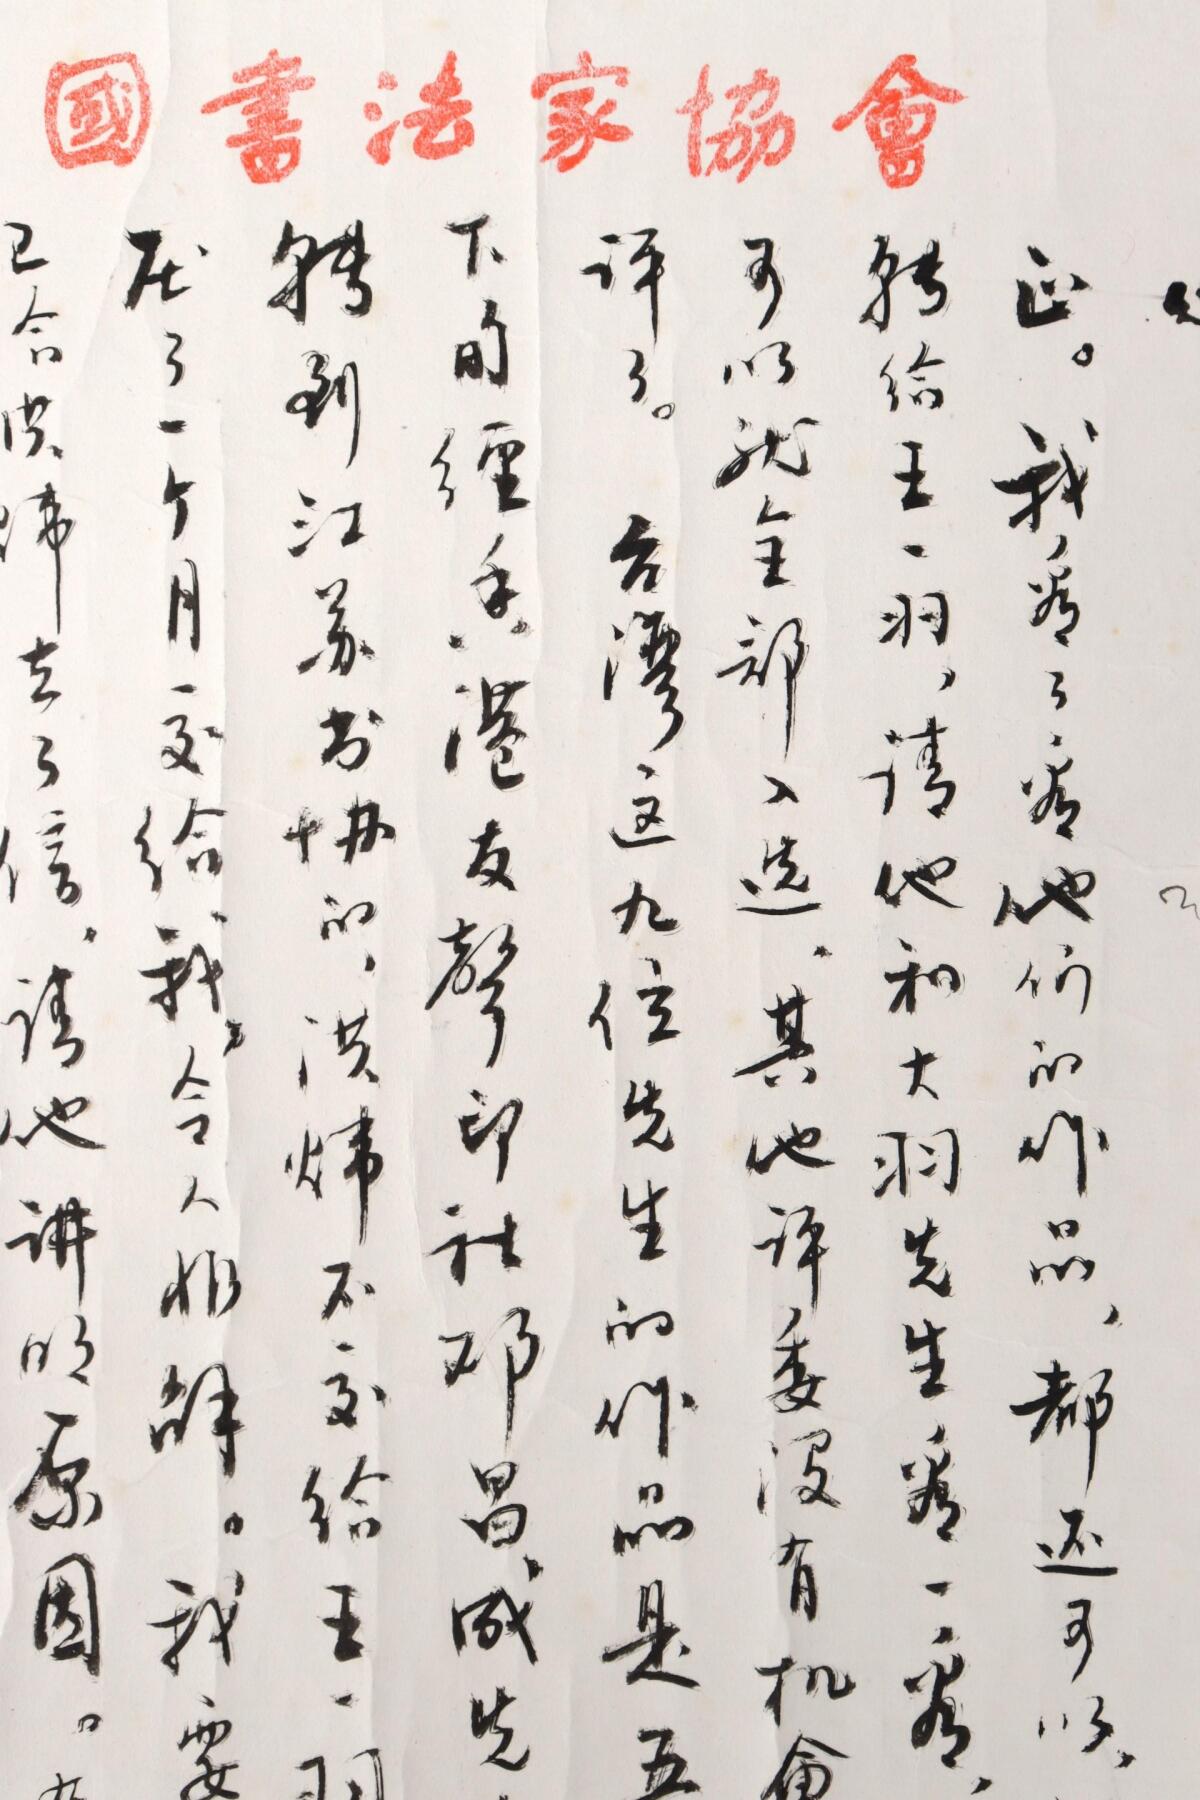 國書法家協會
正。我看了看他们的作品，都还可以，
转给王一羽，请他和大羽先生看一看，
可以就全部入选，其他评委没有机会
评了。台湾这九位先生的作品是五
下旬经香港友声印社邓昌成先
转到江苏书协的，洪炜不交给王一羽
压了一个月交给我，令人难解。我要
已令洪炜去了信，请他讲明原因。